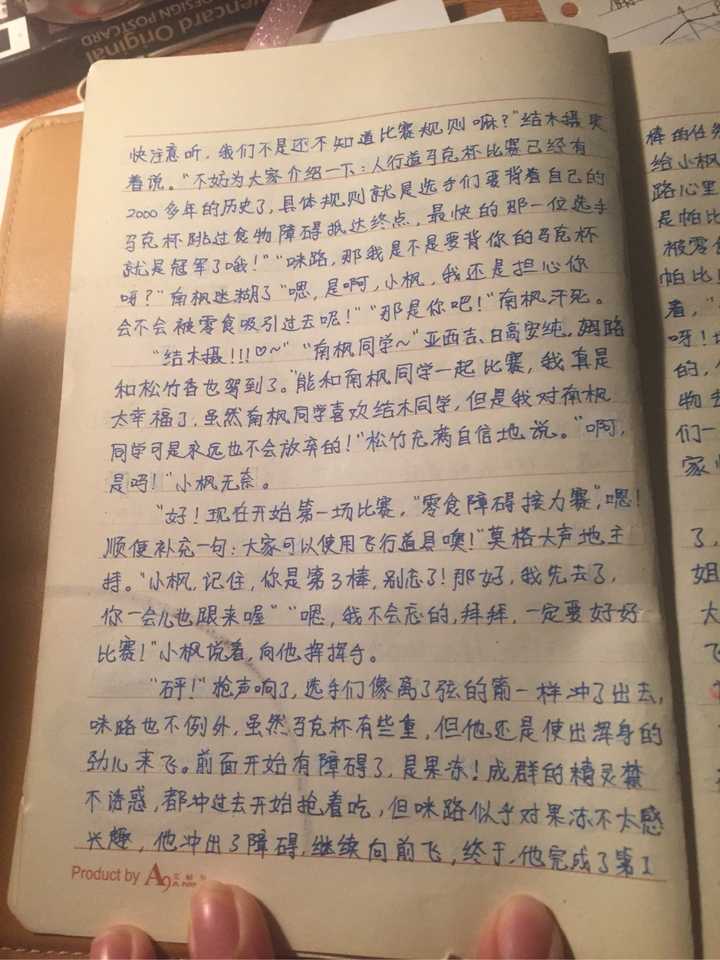 vencard Original
DESIGN POSTCARD
快注意听，我们不是还不知道比赛规则嘛？"结木摄笑
着说。"不妨为大家介绍一下：人行道马克杯比赛已经有
2000多年的历史了，具体规则就是选手们要背着自己的
马克杯跳过食物障碍抵达终点，最快的那一位选手
就是冠军了哦！""咪路，那我是不是要背你的马克杯
呀？"南枫迷糊了"嗯，是啊，小枫，我还是担心你
会不会被零食吸引过去呢！""那是你吧！"南枫汗死。
"结木摄!!!♡~""南枫同学~"亚西吉、日高安纯，姆路
和松竹香也驾到了。"能和南枫同学一起比赛，我真是
太幸福了，虽然南枫同学喜欢结木同学，但是我对南枫
同学可是永远也不会放弃的！"松竹充满自信地说。"啊，
是吗！"小枫无奈。
"好！现在开始第一场比赛，"零食障碍接力赛"，嗯！
顺便补充一句：大家可以使用飞行道具噢！"莫格大声地主
持。"小枫，记住，你是第3棒，别忘了！那好，我先去了，
你一会儿也跟来喔""嗯，我不会忘的，拜拜，一定要好好
比赛！"小枫说着，向他挥挥手。
"砰！"枪声响了，选手们像离了弦的箭一样冲了出去，
咪路也不例外，虽然马克杯有些重，但他还是使出浑身的
劲儿来飞。前面开始有障碍了，是果冻！成群的精灵禁
不诱惑，都冲过去开始抢着吃，但咪路似乎对果冻不太感
兴趣，他冲出了障碍，继续向前飞，终于，他完成了第1
Product by A9
棒的任务
给小枫
路心里
是帕比
被零食
帕比
着，"
呀！
的，
物去
们一
家
了，
姐
大
飞